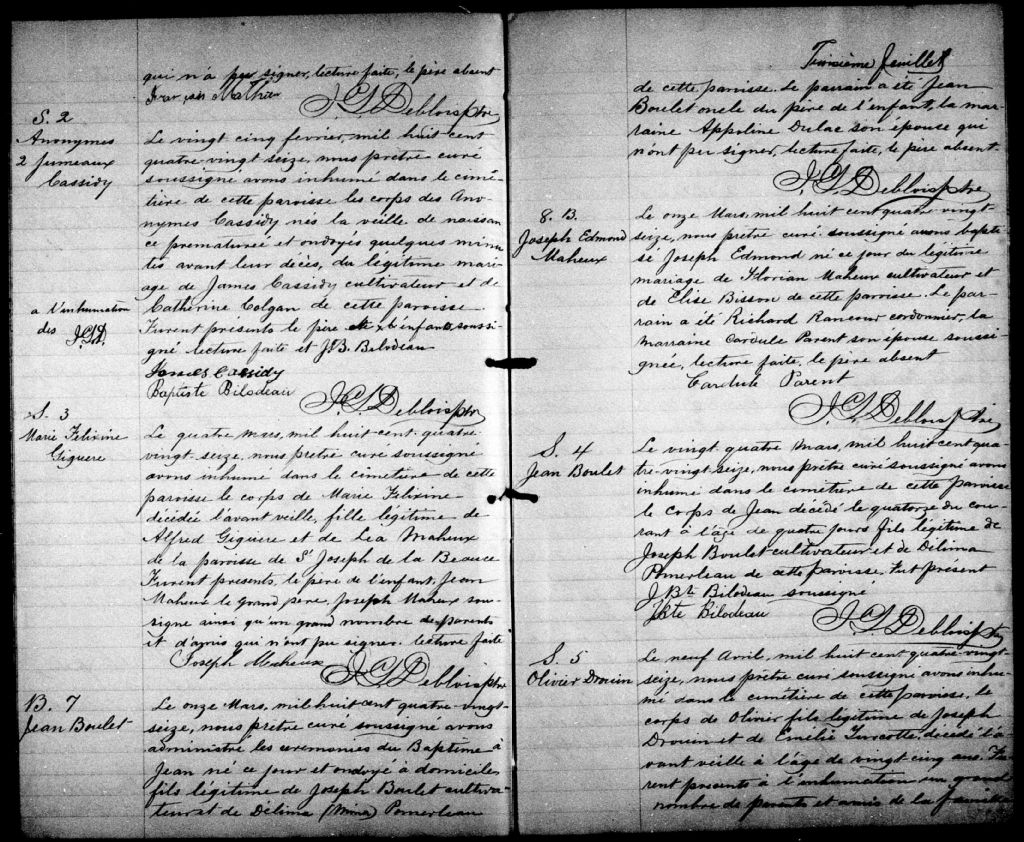 qui n'a pu signer, lecture faite, le père absent
François Mathieu
J. G. L. Deblois ptre
S. 2
Anonymes
2 Jumeaux
Cassidy
Le vingt cinq fevrier, mil huit cent
quatre-vingt seize, nous prêtre curé
soussigné avons inhumé dans le cime-
tière de cette paroisse les corps des Ano-
nymes Cassidy nés la veille de naissan
ce prematureé et ondoyés quelques minu
tes avant leur décès, du légitime mari-
age de James Cassidy cultivateur et de
Catherine Colgan de cette paroisse
a l'inhumation
des
Furent présents le père et l'enfant soussi
gné lecture faite et J. B. Bilodeau
James Cassidy
Baptiste Bilodeau
J. G. L. Deblois ptre
S. 3
Marie Felixine
Giguere
Le quatre mars, mil huit cent quatre
vingt seize, nous prêtre curé soussigné
avons inhumé dans le cimetière de cette
paroisse le corps de Marie Felixine
décédée l'avant veille, fille légitime de
Alfred Giguere et de Lea Maheux
de la paroisse de St Joseph de la Beauce
Furent presents, le père de l'enfant, Jean
Maheux le grand père, Joseph Maheux sou-
signé ainsi qu'un grand nombre de parents
et d'amis qui n'ont pu signer. lecture faite
Joseph Maheux
J. G. L. Deblois ptre
B. 7
Jean Boulet
Le onze Mars, mil huit cent quatre vingt-
seize, nous prêtre curé soussigné avons
administré les ceremonies du Baptême à
Jean né ce jour et ondoyé à domicile
fils légitime de Joseph Boulet cultiva-
teur et de Délima (Mina) Pomerleau
Troisième feuillet
de cette paroisse. Le parrain a été Jean
Boulet oncle du père de l'enfant, la mar-
raine Appoline Dulac son épouse qui
n'ont pu signer, lecture faite, le père absent.
J. G. L. Deblois ptre
8. B.
Joseph Edmond
Maheux
Le onze Mars, mil huit cent quatre vingt-
seize, nous prêtre curé soussigné avons bapti-
sé Joseph Edmond né ce jour du légitime
mariage de Florian Maheux cultivateur et
de Elise Bisson de cette paroisse. Le par-
rain a été Richard Rancour cordonnier, la
marraine Cordule Parent son épouse soussi-
gnée, lecture faite, le père absent
Cordule Parent
J. G. L. Deblois ptre
S. 4
Jean Boulet
Le vingt quatre mars, mil huit cent qua
tre-vingt seize, nous prêtre curé soussigné avons
inhumé dans le cimetière de cette paroisse
le corps de Jean décédé le quatorze du cou-
rant à l'âge de quatre jours fils légitime de
Joseph Boulet cultivateur et de Délima
Pomerleau de cette paroisse. Fut présent
J. Bte Bilodeau soussigné
Jbte Bilodeau
J. G. L. Deblois ptre
S. 5
Olivier Drouin
Le neuf Avril, mil huit cent quatre-vingt-
seize, nous prêtre curé soussigné avons inhu-
mé dans le cimetière de cette paroisse, le
corps de Olivier fils légitime de Joseph
Drouin et de Emélie Turcotte, décédé l'a-
vant veille à l'âge de vingt cinq ans. Fu-
rent présents à l'inhumation un grand
nombre de parents et amis de la famille